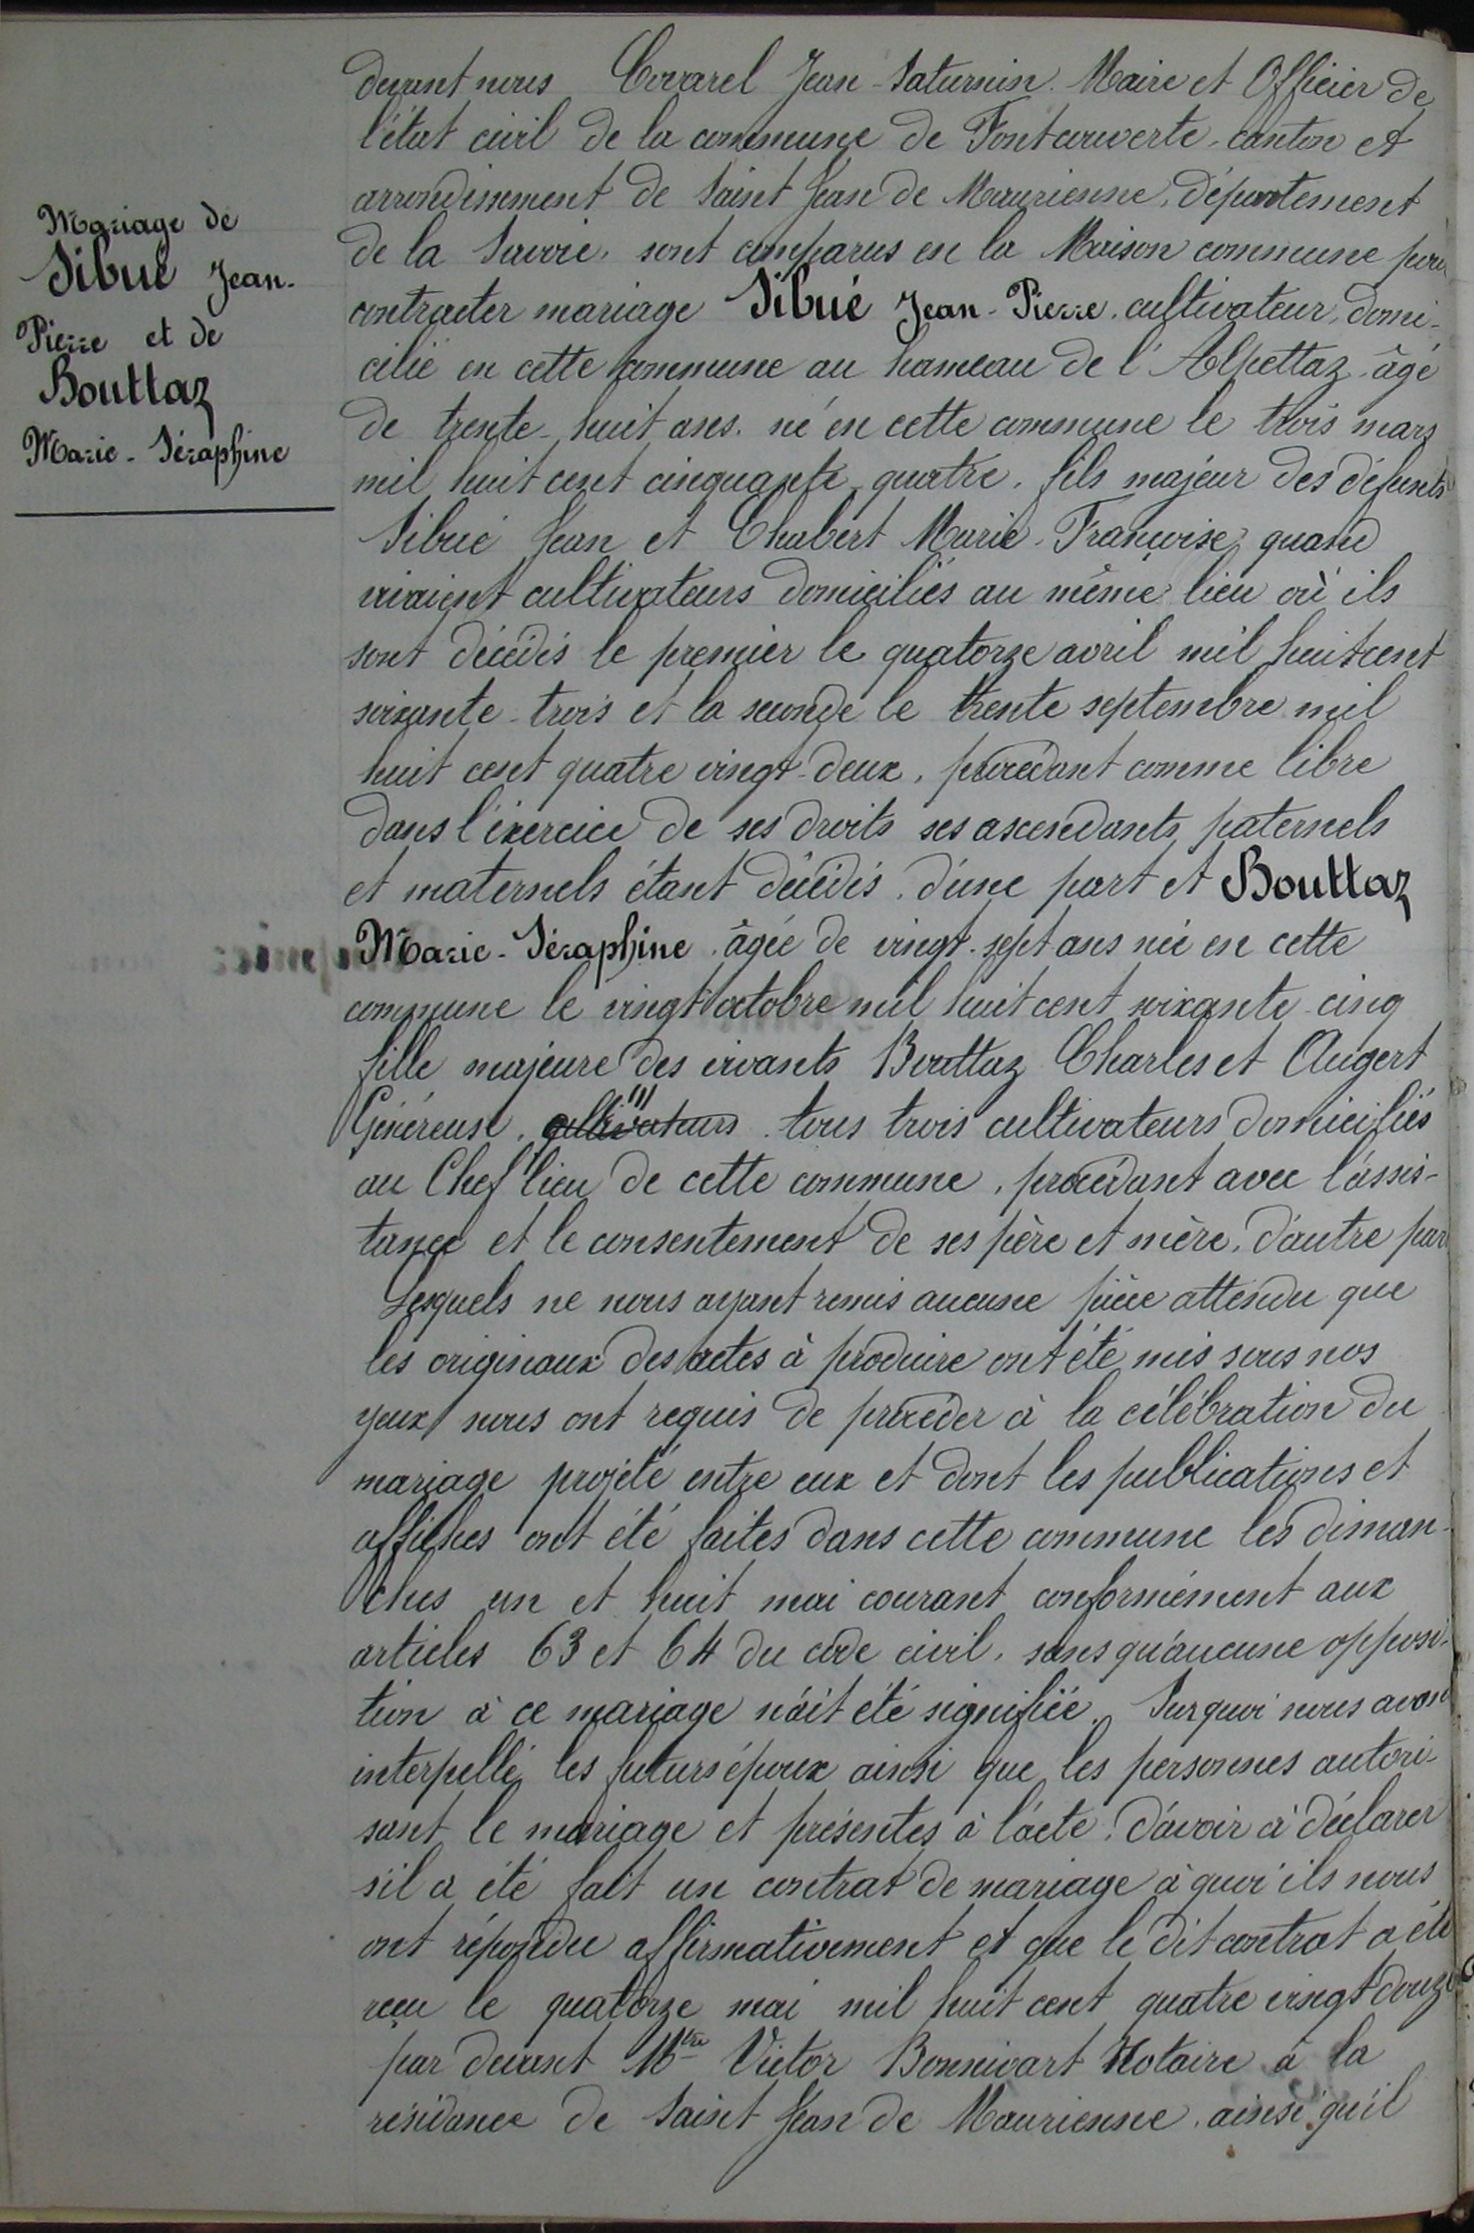 Mariage de
Sibué Jean-
Pierre et de
Bouttaz
Marie-Séraphine
devant nous Covarel Jean-Saturnin. Maire et Officier de
l'état civil de la commune de Fontcouverte, canton et
arrondissement de Saint Jean de Maurienne, département
de la Savoie, sont comparus en la Maison commune pour
contracter mariage Sibué Jean-Pierre, cultivateur, domi-
cilié en cette commune au hameau de l'Alpettaz, âgé
de trente-huit ans, né en cette commune le trois mars
mil huit cent cinquante-quatre, fils majeur des défunts
Sibué Jean et Chabert Marie-Françoise, quand
vivaient cultivateurs domiciliés au même lieu où ils
sont décédés le premier le quatorze avril mil huit cent
soixante-trois et la seconde le trente septembre mil
huit cent quatre vingt-deux, procédant comme libre
dans l'éxercice de ses droits ses ascendants paternels
et maternels étant décédés, d'une part et Bouttaz
Marie-Séraphine, âgée de vingt-sept ans née en cette
commune le vingt octobre mil huit cent soixante-cinq
fille majeure des vivants Bouttaz Charles et Augert
Généreuse, cultivateurs, tous trois cultivateurs domiciliés
au Chef lieu de cette commune, procédant avec l'assis-
tance et le consentement de ses père et mère, d'autre part
Lesquels ne nous ayant remis aucune pièce attendu que
les originaux des actes à produire ont été mis sous nos
yeux, nous ont requis de procéder à la célébration du
mariage projeté entre eux et dont les publications et
affiches ont été faites dans cette commune les diman-
ches un et huit mai courant conformément aux
articles 63 et 64 du code civil, sans qu'aucune opposi-
tion à ce mariage n'ait été signifiée. Sur quoi nous avons
interpellé les futurs époux ainsi que les personnes autori-
sant le mariage et présentes à l'acte, d'avoir à déclarer
s'il a été fait un contrat de mariage à quoi ils nous
ont répondu affirmativement et que le dit contrat a été
reçu le quatorze mai mil huit cent quatre vingt douze
par devant Mtre Victor Bonnivart Notaire à la
résidance de Saint Jean de Maurienne, ainsi qu'il